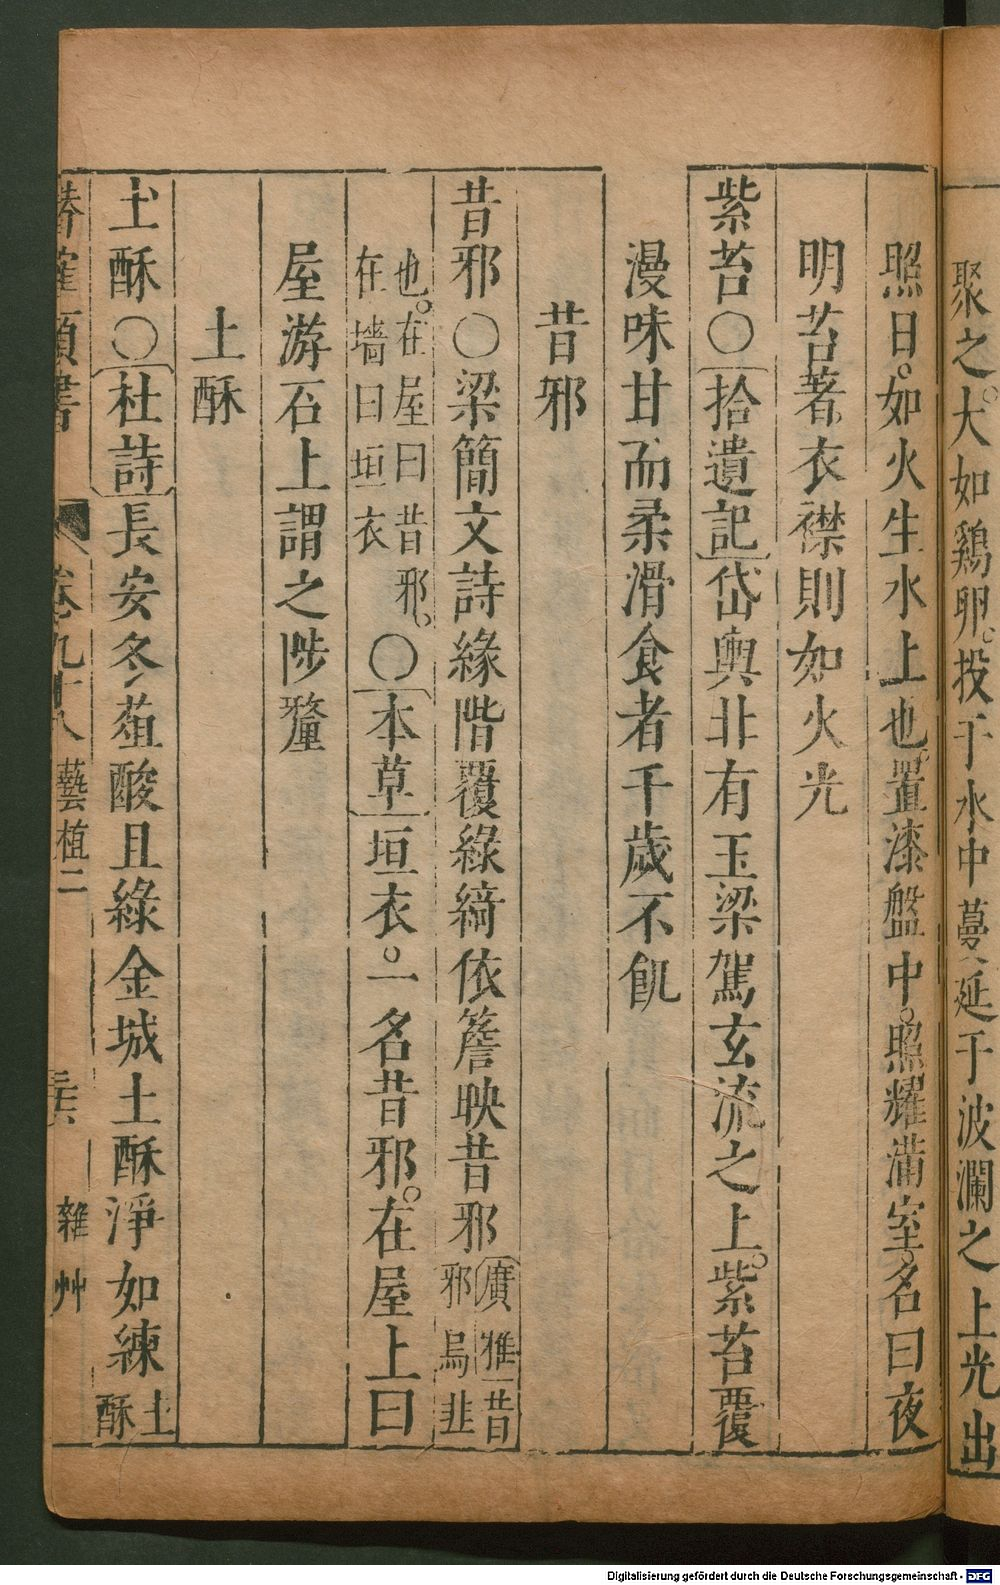 聚之。大如鷄卵。投于水中蔓延于波瀾之上光出
照日。如火生水上也。置漆盤中。照耀滿室。名曰夜
明苔著衣襟則如火光
紫苔〇拾遺記岱輿非有玉梁駕玄流之上。紫苔覆
漫味甘而柔滑食者千歲不飢
昔邪
昔邪〇梁簡文詩緣階覆綠綺依簷映昔邪廣雅昔邪烏韭
也。在屋曰昔邪。在墻曰垣衣〇本草垣衣。一名昔邪。在屋上曰
屋游石上謂之陟釐
土酥
土酥〇杜詩長安冬葅酸且綠金城土酥淨如練土酥
類書 卷九十八 藝植二 三六 雜艸
Digitalisierung gefördert durch die Deutsche Forschungsgemeinschaft - DFG